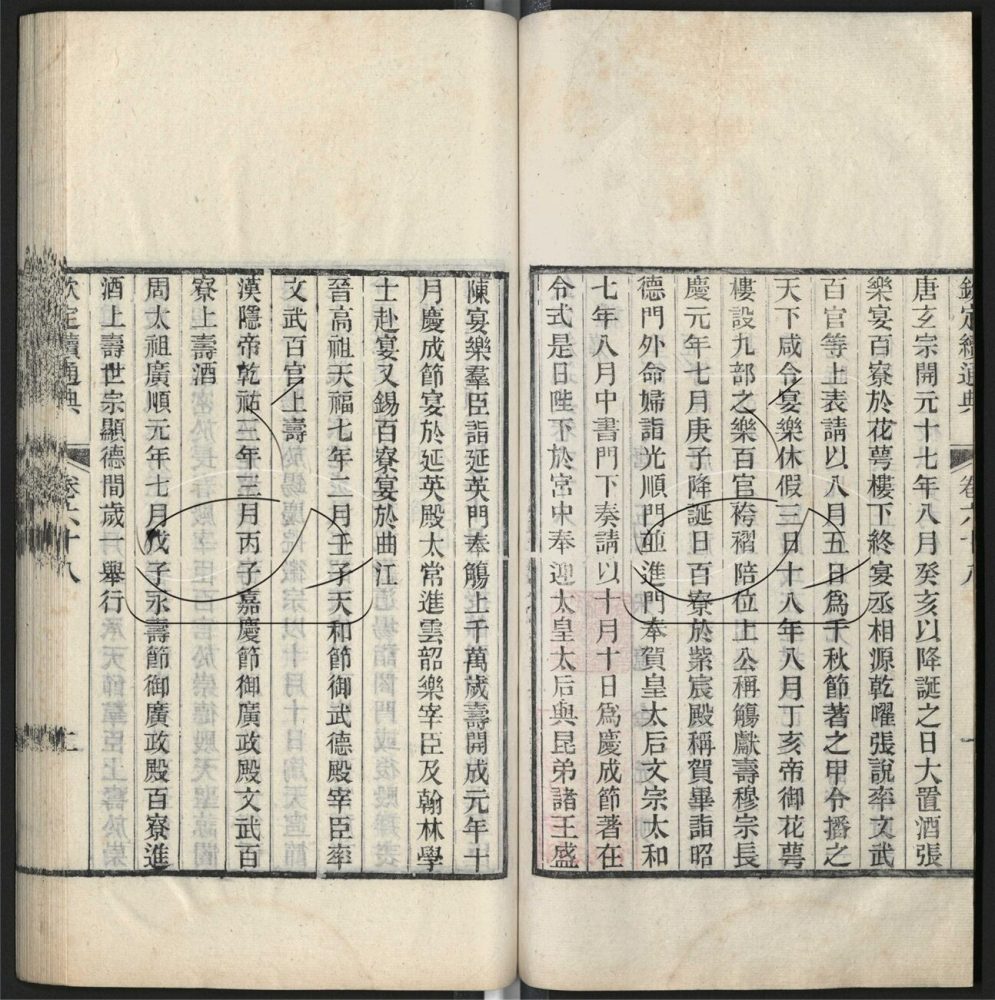 欽定續通典 卷六十八 一
唐玄宗開元十七年八月癸亥以降誕之日大置酒張
樂宴百寮於花萼樓下終宴丞相源乾曜張說率文武
百官等上表請以八月五日爲千秋節著之甲令播之
天下咸令宴樂休假三日十八年八月丁亥帝御花萼
樓設九部之樂百官袴褶陪位上公稱觴獻壽穆宗長
慶元年七月庚子降誕日百寮於紫宸殿稱賀畢詣昭
德門外命婦詣光順門並進門奉賀皇太后文宗太和
七年八月中書門下奏請以十月十日爲慶成節著在
令式是日陛下於宮中奉迎太皇太后與昆弟諸王盛
陳宴樂羣臣詣延英門奉觴上千萬歲壽開成元年十
月慶成節宴於延英殿太常進雲韶樂宰臣及翰林學
士赴宴又錫百寮宴於曲江
晉高祖天福七年二月壬子天和節御武德殿宰臣率
文武百官上壽
漢隱帝乾祐三年三月丙子嘉慶節御廣政殿文武百
寮上壽酒
周太祖廣順元年七月戊子永壽節御廣政殿百寮進
酒上壽世宗顯德間歲一舉行
欽定續通典 卷六十八 二